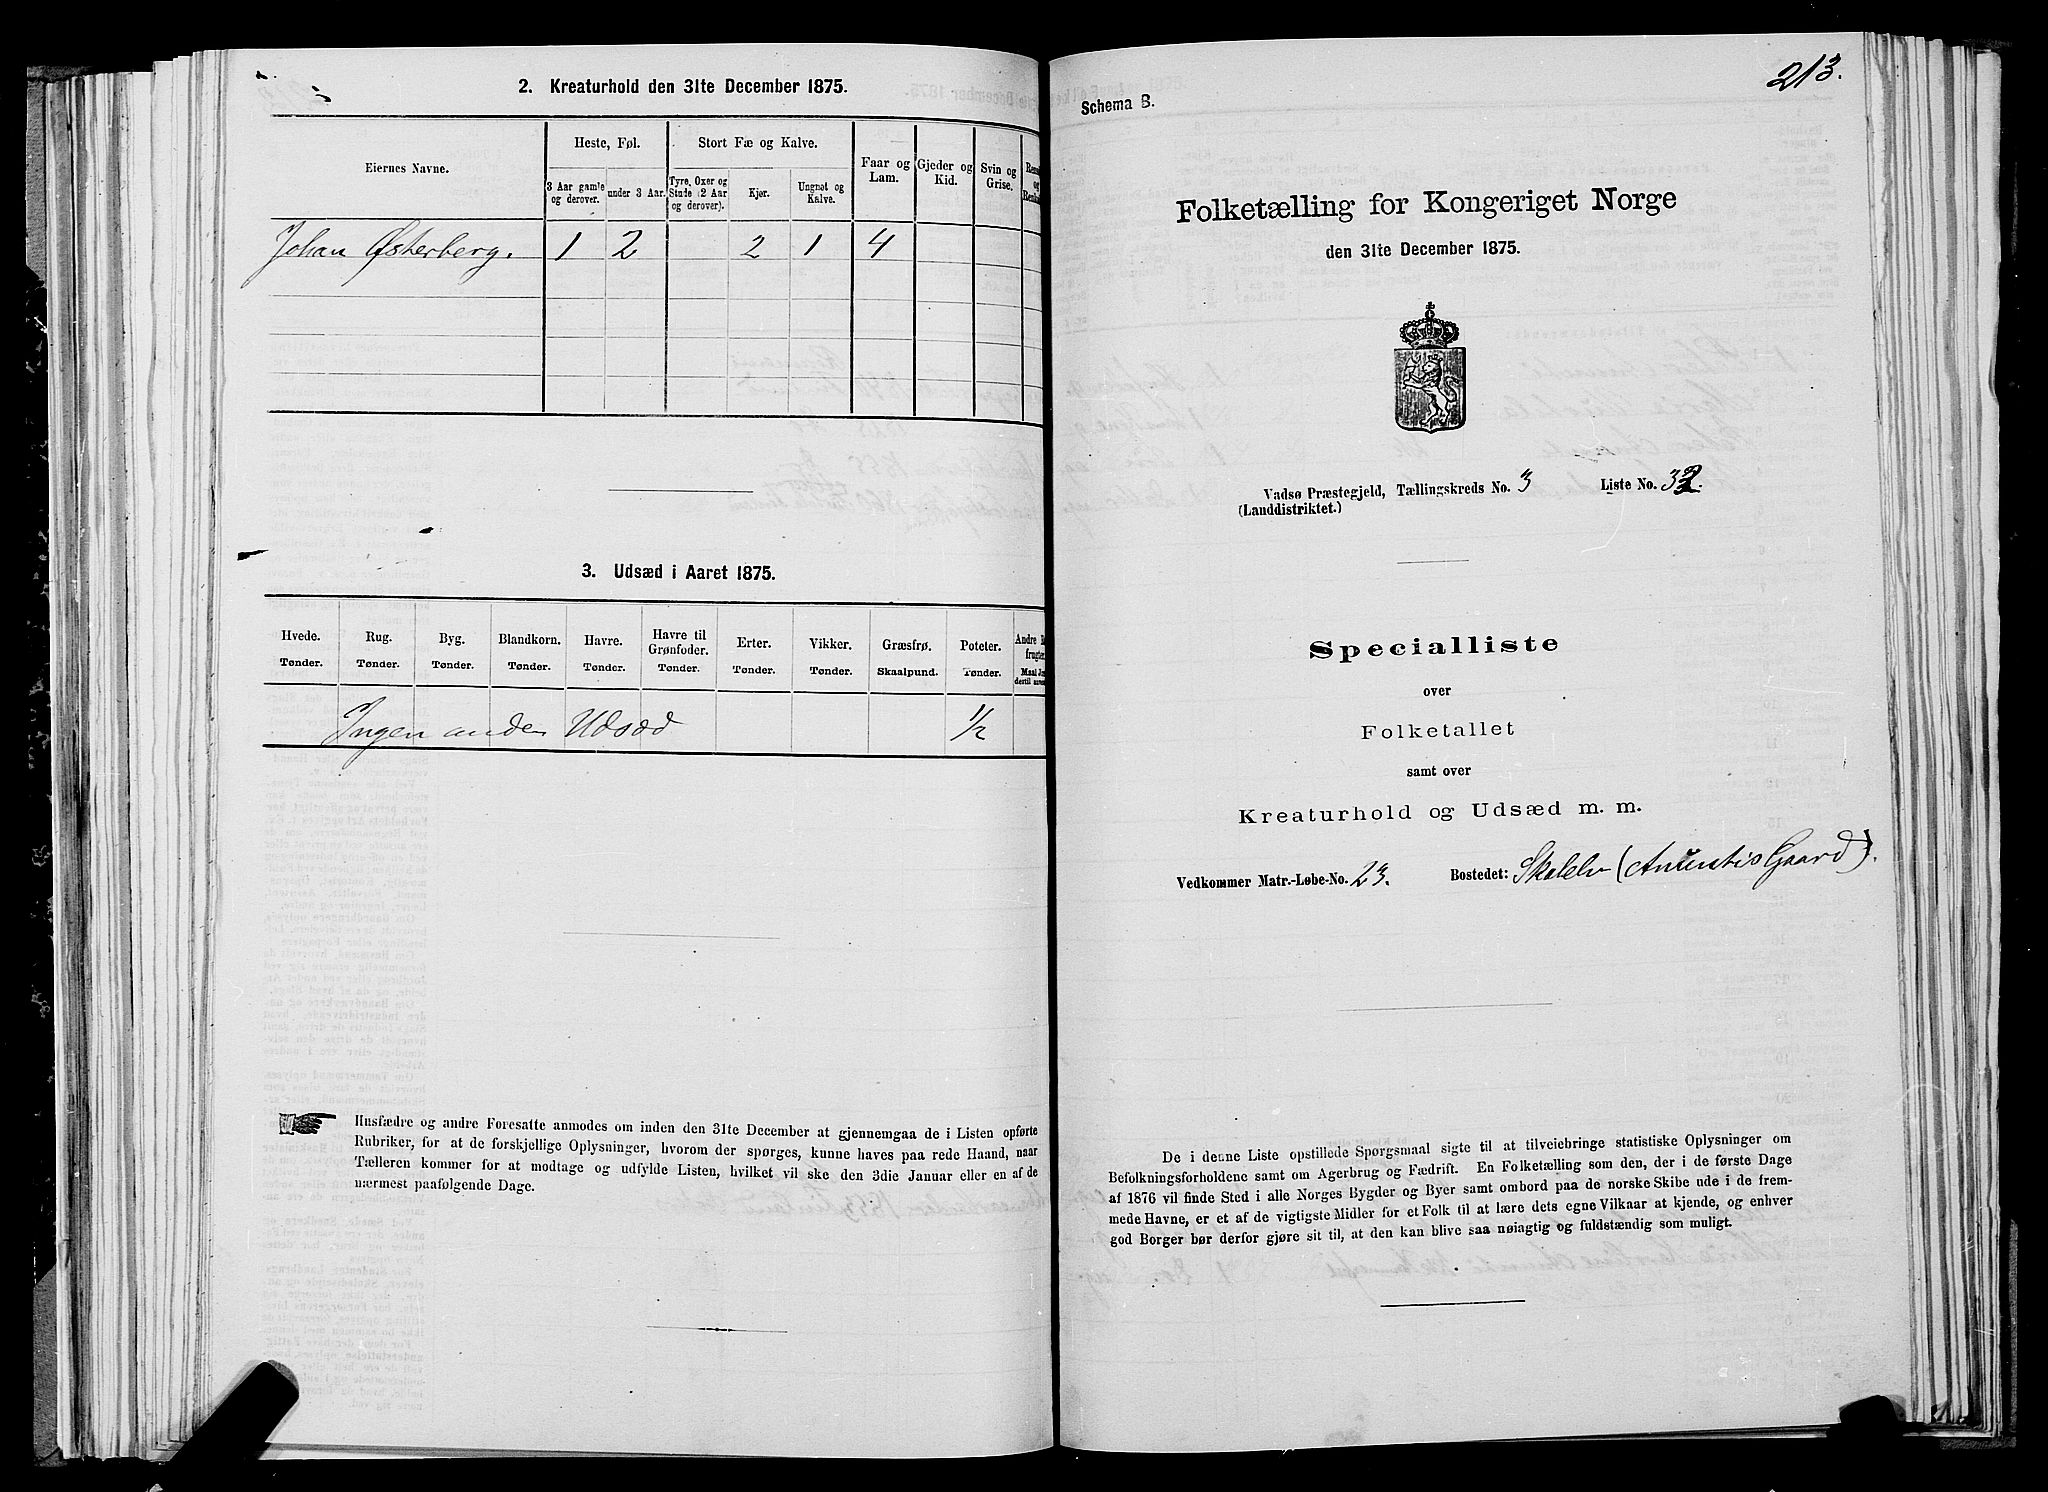 2. Kreaturhold den 31te December 1875.
Eiernes Navne.
Heste, Føl.
Stort Fæ og Kalve.
Faar og
Lam.
Gjeder og
Kid.
Svin og
Grise.
3 Aar gamle
og derover.
under 3 Aar.
Tyre, Oxer og
Stude (2 Aar
og derover).
Kjør.
Ungnøt og
Kalve.
Johan Østerberg. 1 2 2 1 4
3. Udsæd i Aaret 1875.
Hvede.
Tønder.
Rug.
Tønder.
Byg.
Tønder.
Blandkorn.
Tønder.
Havre.
Tønder.
Havre til
Grønfoder.
Tønder.
Erter.
Tønder.
Vikker.
Tønder.
Græsfrø.
Skaalpund.
Poteter.
Tønder.
Andre
Ingen anden Udsæd 1/2
Husfædre og andre Foresatte anmodes om inden den 31te December at gjennemgaa de i Listen opførte
Rubriker, for at de forskjellige Oplysninger, hvorom der spørges, kunne haves paa rede Haand, naar
Tælleren kommer for at modtage og udfylde Listen, hvilket vil ske den 3die Januar eller en af de
nærmest paafølgende Dage.
213.
Schema B.
Folketælling for Kongeriget Norge
den 31te December 1875.
Vadsø Præstegjeld, Tællingskreds No. 3 Liste No. 32.
(Landdistriktet.)
Specialliste
over
Folketallet
samt over
Kreaturhold og Udsæd m. m.
Vedkommer Matr.-Løbe-No. 23. Bostedet: Skalelv (Anuntis Gaard).
De i denne Liste opstillede Spørgsmaal sigte til at tilveiebringe statistiske Oplysninger om
Befolkningsforholdene samt om Agerbrug og Fædrift. En Folketælling som den, der i de første Dage
af 1876 vil finde Sted i alle Norges Bygder og Byer samt ombord paa de norske Skibe ude i de frem-
mede Havne, er et af de vigtigste Midler for et Folk til at lære dets egne Vilkaar at kjende, og enhver
god Borger bør derfor gjøre sit til, at den kan blive saa nøiagtig og fuldstændig som muligt.